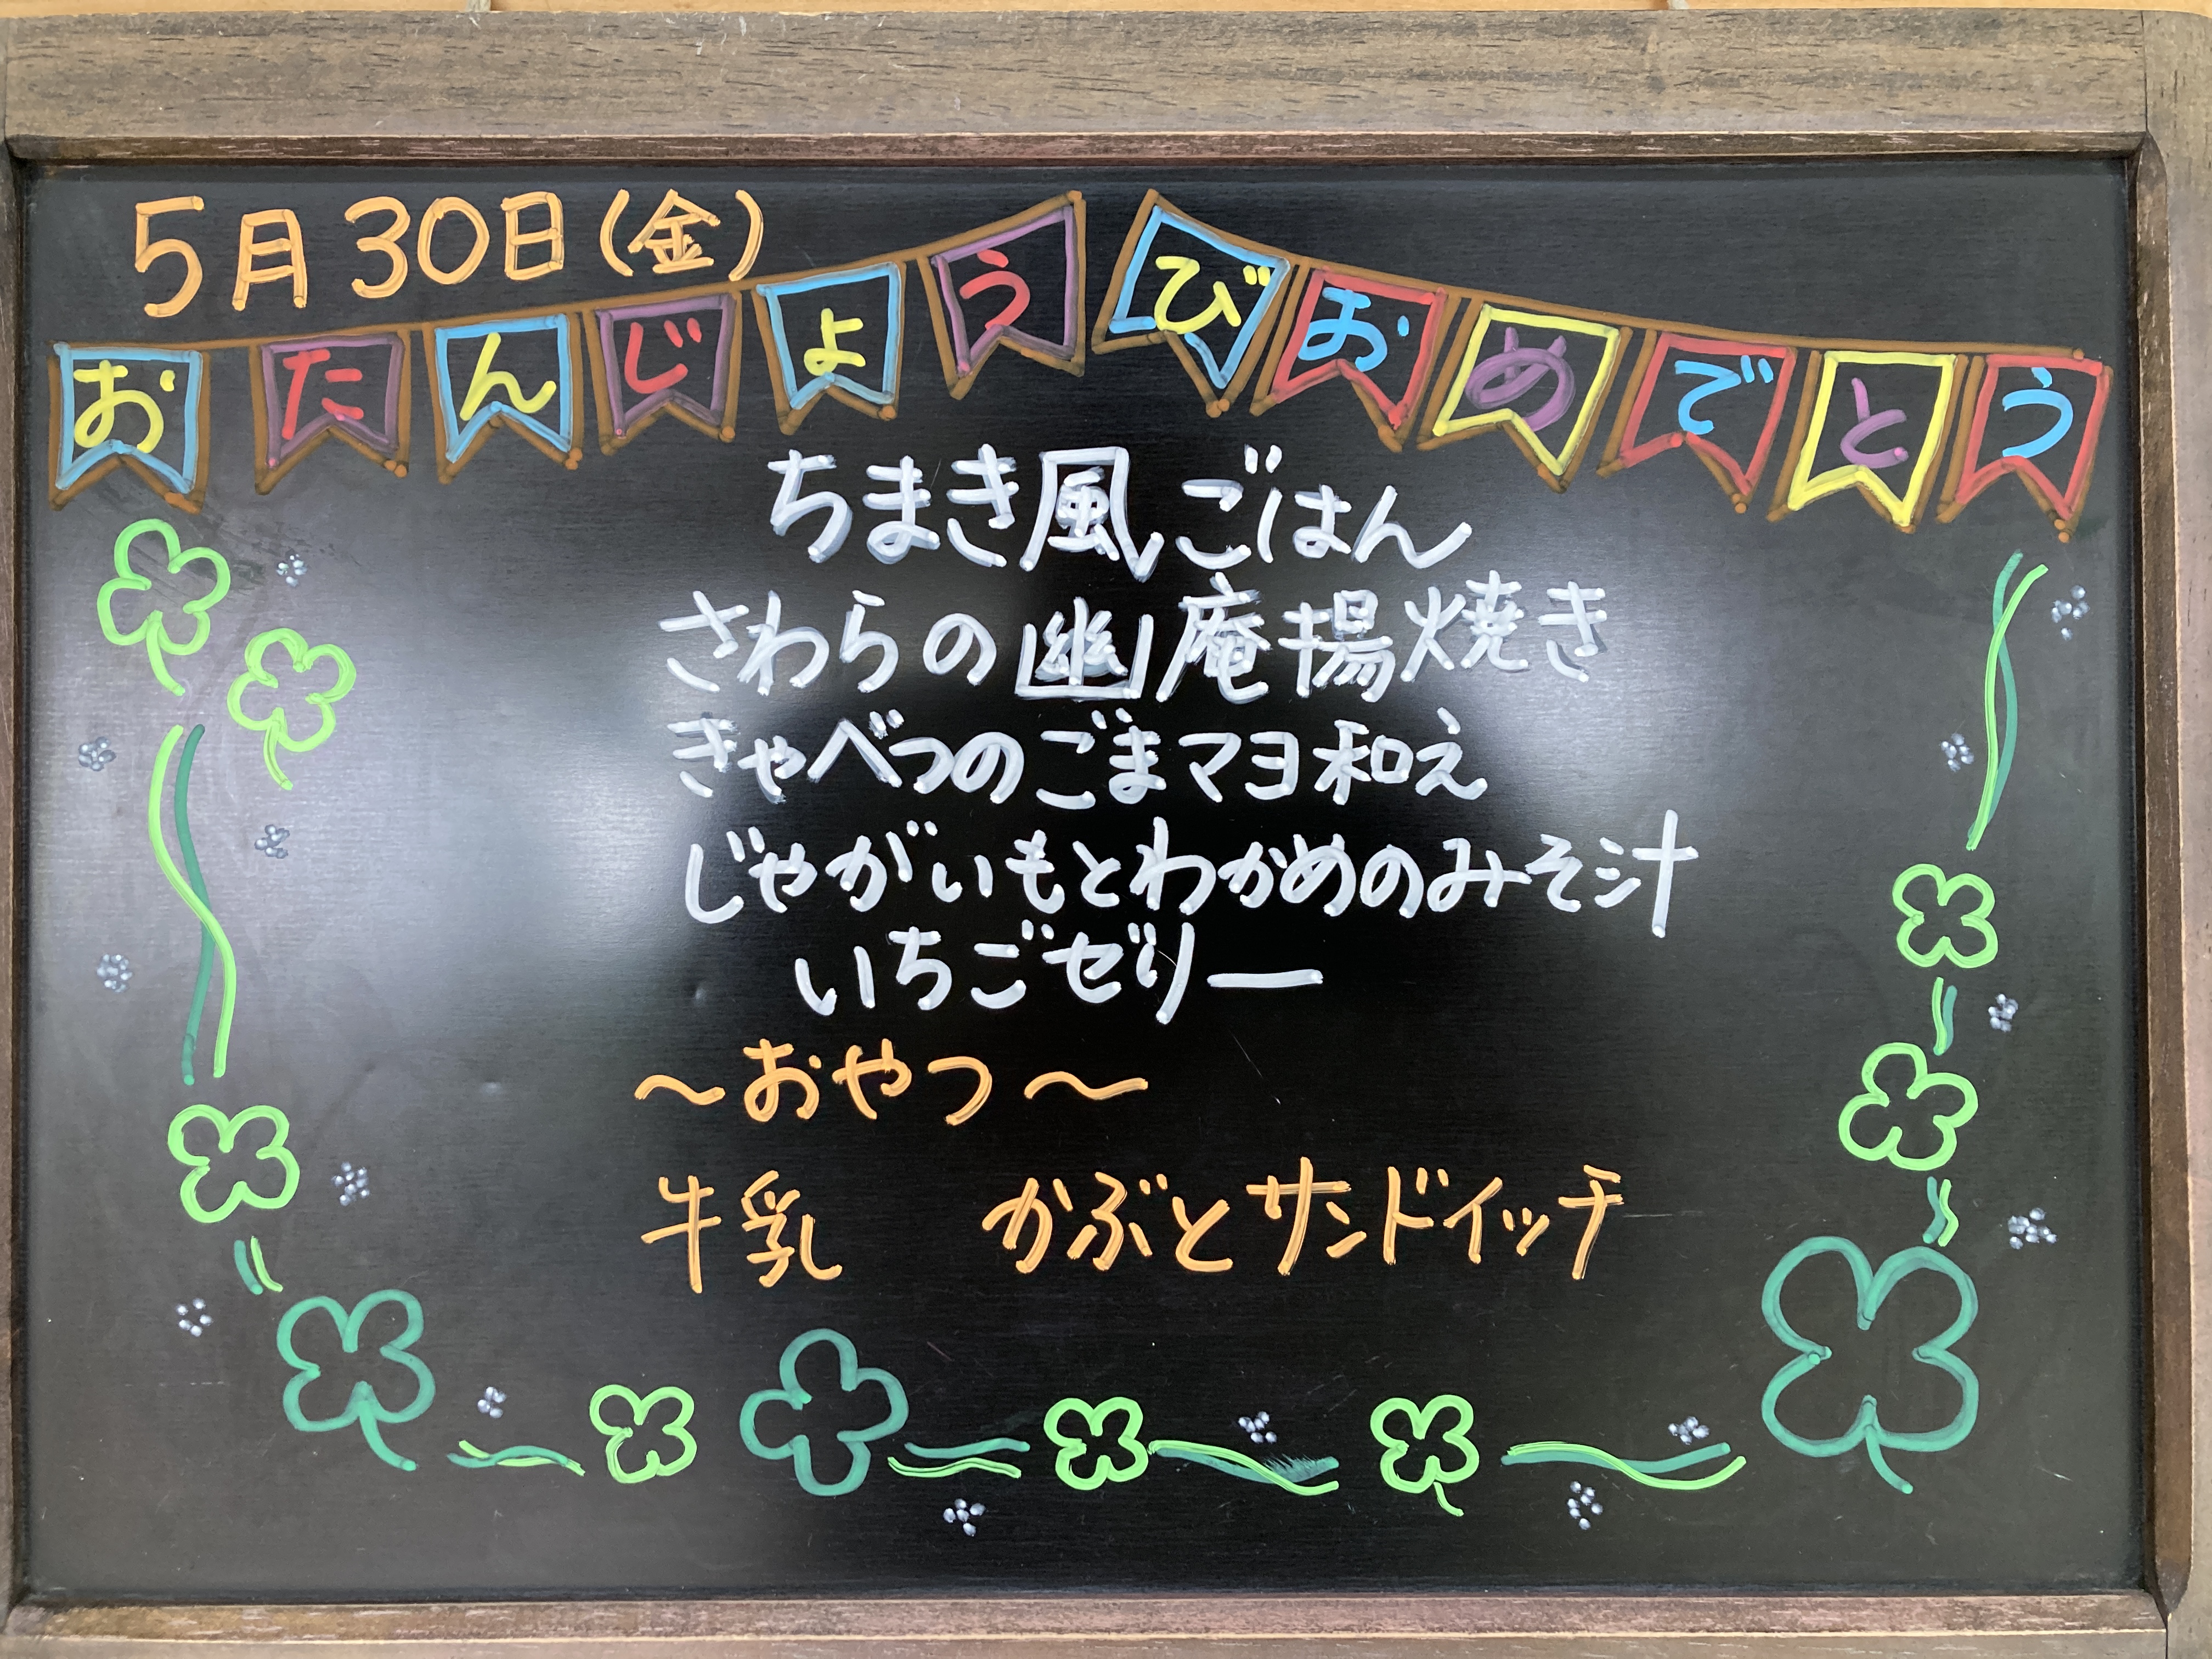 5月30日(金)
おたんじょうびおめでとう
ちまき風ごはん
さわらの幽庵揚焼き
きゃべつのごまマヨ和え
じゃがいもとわかめのみそ汁
いちごゼリー
～おやつ～
牛乳　かぶとサンドイッチ